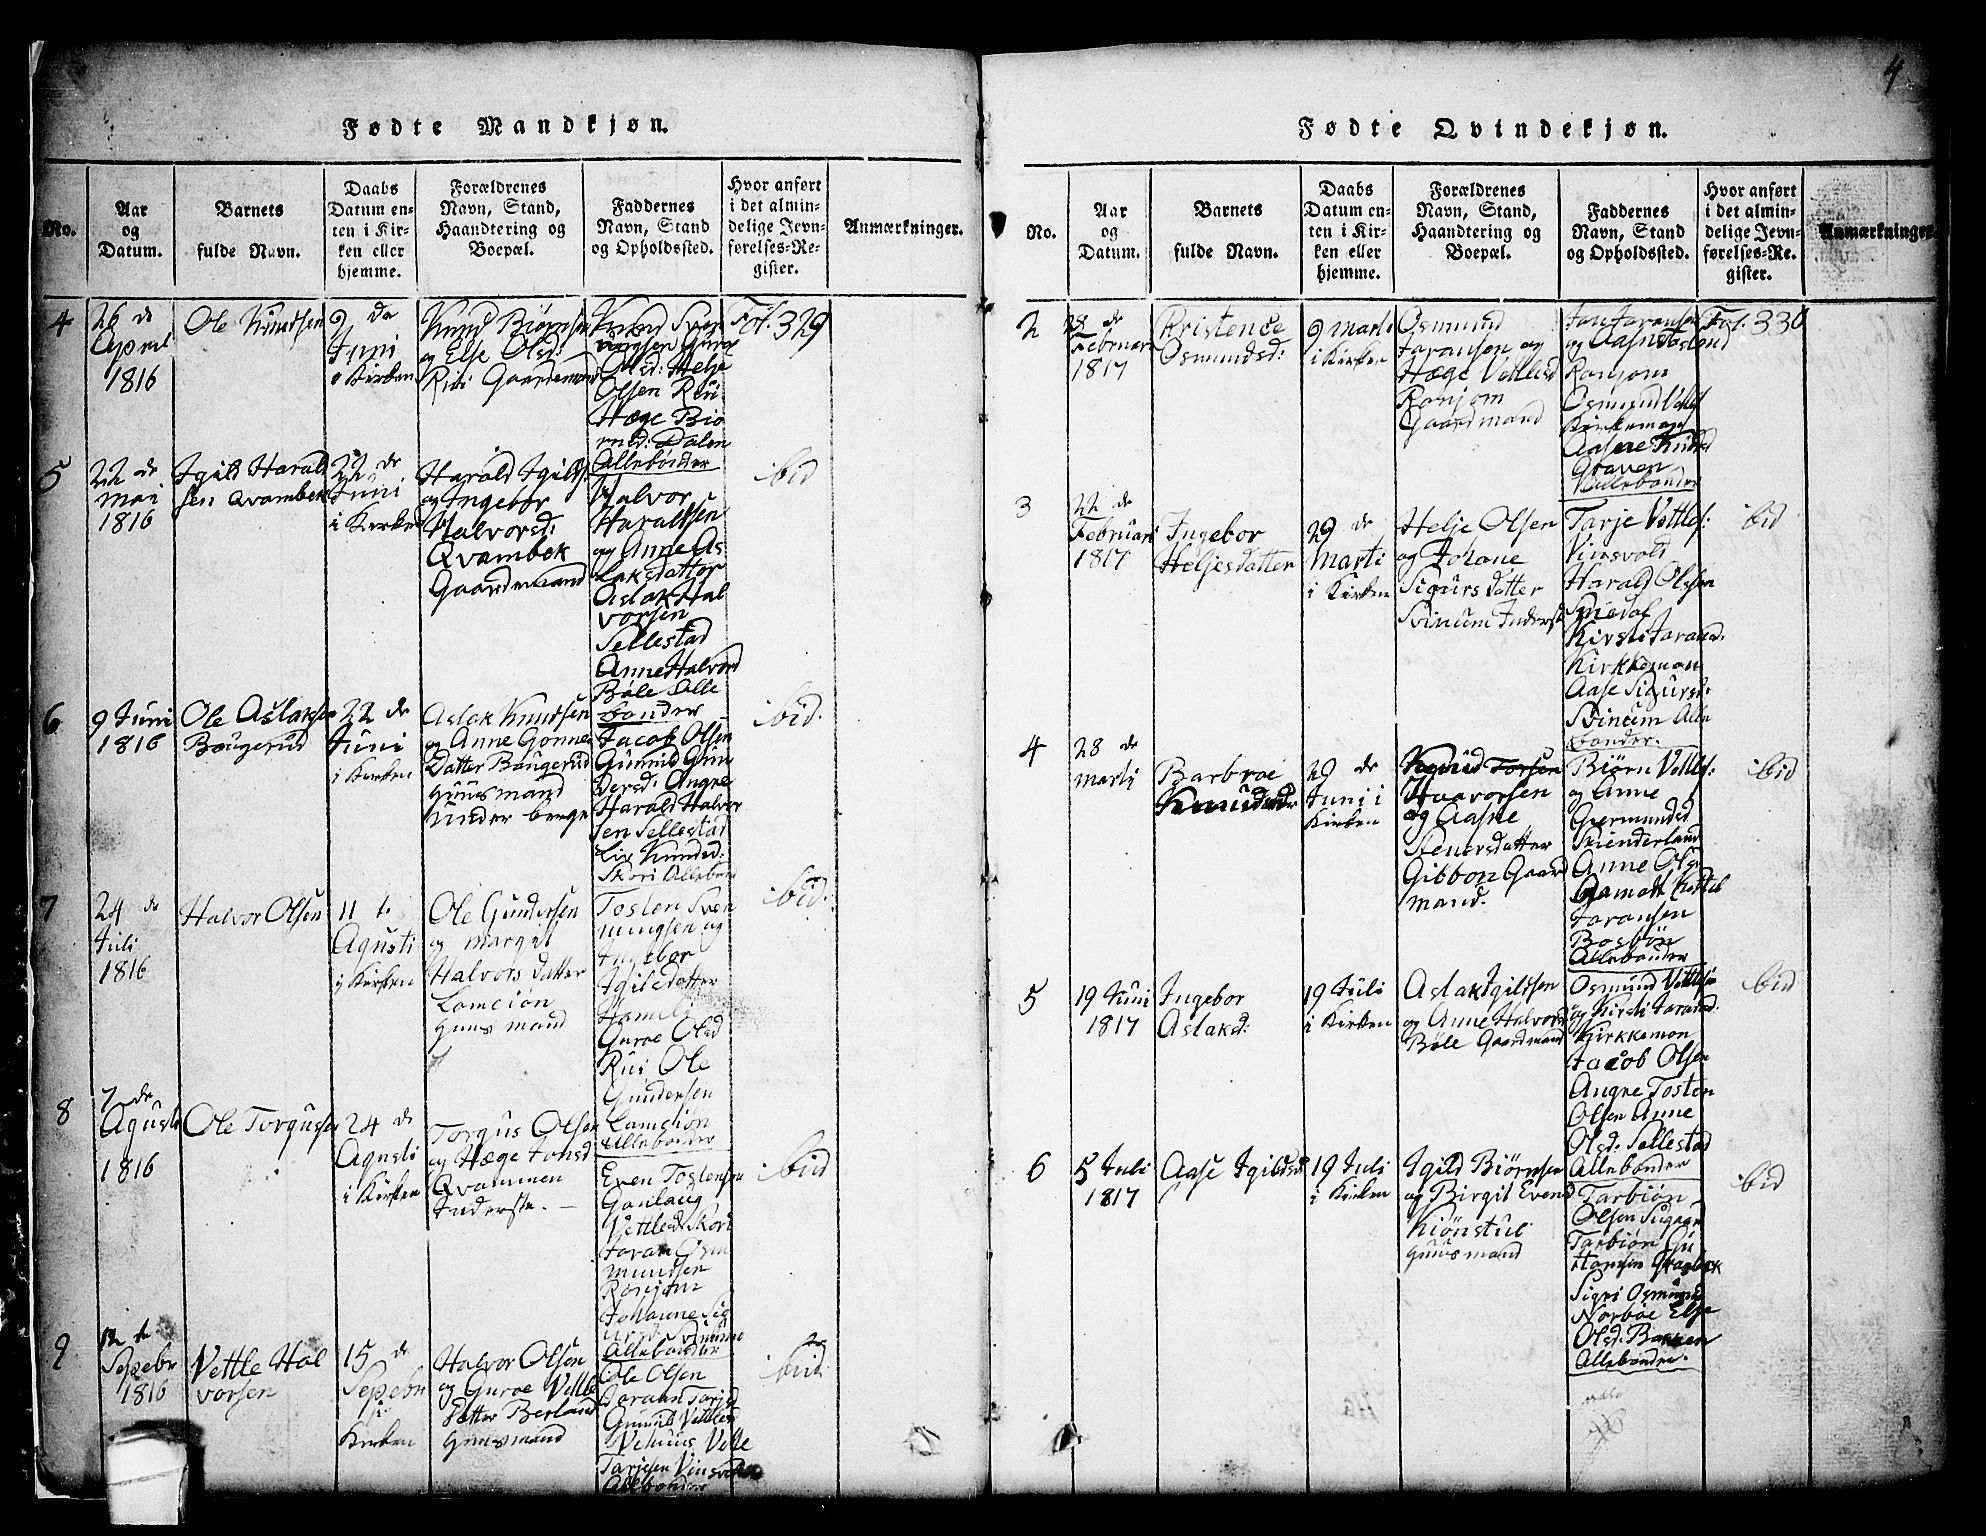 4
Fødte Mandkjøn.
No.
Aar
og
Datum.
Barnets
fulde Navn.
Daabs
Datum en-
ten i Kir-
ken eller
hjemme.
Forældrenes
Navn, Stand,
Haandtering og
Boepæl.
Faddernes
Navn, Stand
og Opholdssted.
Hvor anført
i det almin-
delige Jevn-
førelses-Re-
gister.
Anmærkninger.
4
26 de
Apriil
1816
Ole Knudsen
9 de
Juni
i Kirken
Knud Biørnsen
og Else Olsd:
Rui Gaardemand
Knud Sven
nungsen Guroe
Olsd: Helje
Olsen Rui
Hæge Biø
rnsd: Dalen
Allebønder
Fol. 329
5
22 de
Mai
1816
Igild Harald
sen Qvambek
22 de
Juni
i Kirken
Harald Igilds:
og Ingebor
Halvorsd:
Qvambek
Gaardemand
Halvor
Haraldsen
og Anne As
laksdatter
Aslak Hal
vorsen
Sellestad
Anne Halvorsd
Bøle Alle
bønder
ibid
6
9 Juni
1816
Ole Aslaksen
Baugerud
22 de
Juni
i Kirken
Aslak Knudsen
og Anne Gonne
Datter Baugerud
Huusmand
under berge
Jacob Olsen
Gunnid Gun
dersd: Angne
Harald Halvor
sen Sellestad
Liv Knudsd:
Skori Allebøn
ibid.
7
24 de
Juli
1816
Halvor Olsen
11 te
Agusti
i Kirken
Ole Gundersen
og Margit
Halvors datter
Lomeiøn
Huusmand
Tosten Sven
nungsen og
Ingebor
Igilsdatter
Guroe Olsd
Rui Ole
Gundersen
Lameiøn
Allebønder
ibid.
8
7 de
Agusti
1816
Ole Torgussen
24 de
Agusti
i Kirken
Torgus Olsen
og Hæge Jonsd
Qvammen
Inderste.
Even Tostensen
Gunlaug
Vettled Skori
Joran Osm
mundsen
Ronjom
Johanne Sig
ursd Svinum
Allebønder
ibid
9
12 te
Sepebr
1816
Vettle Hal
vorsen
15 de
Sepebr
i
Kirken
Halvor Olsen
og Guroe Vettle
datter Berland
Huusmand
Ole Olsen
Joraan Torjsd
Gunnild Vettles
Vehuus Vetle
Tarjesen Vinsvold
Allebønder
ibid
Fødte Qvindekjøn.
No.
Aar
og
Datum.
Barnets
fulde Navn.
Daabs
Datum en-
ten i Kir-
ken eller
hjemme.
Forældrenes
Navn, Stand,
Haandtering og
Boepæl.
Faddernes
Navn, Stand
og Opholdssted.
Hvor anført
i det almin-
delige Jevn-
førelses-Re-
gister.
Anmærkninger.
2
28 de
Februari
1817
Kristence
Osmundsd:
9 Marti
i Kirken
Osmund
Joransen og
Hæge Vettlesd
Ronjom
Gaardmand
Jan Joransen
og Aasne
Ronjom
Osmund Vettles
Kirkemoen
Aasne Knudsd
Graven
Allebønder
Fol. 330
3
22 de
Februari
1817
Ingebor
Heljesdatter
29 de
Marti
i Kirken
Helje Olsen
og Johane
Sigursdatter
Svinum Inderst
Tarje Vettles:
Vinsvold
Harald Olssen
Kirsti Jorand.
Kirkkeman
Aase Sigursd:
Svinum Alle
bønder.
ibid
4
28 de
Marty
Barbroe
29 de
Juni i
Kirken
Knud Torsen
Haavorsen
og Aasne
Steners datter
Gibbon Gaard
mand.
Biørn Vettles:
og Anne
Germundsd
Skienderland
Anne Olsd
Gamodt Kettel
Joransen
Bosbøn
Allebønder
ibid
5
19 Juni
1817
Ingebor
Aslaksd:
19 Juli
i Kirken
Aslak Igildsen
og Anne Halvorsd
Bøle Gaardmand
Osmund Vettles:
og Kirsti Jorand:
Kirkkemon
Jacob Olsen
Angne Tosten
Olsen Anne
Olsd: Sellestad
Allebønder
ibid
6
5 Juli
1817
Aase Igildsd:
19 Juli
i Kirken
Igild Biørnsen
og Birgit Evend
Kiønstul
Huusmand
Tarbiøn
Olsen Sugaar
Tarbiøn Gu
Sigri Osmunds
Norbøe Else
Olsd: Bakken
Allebønder.
ibid